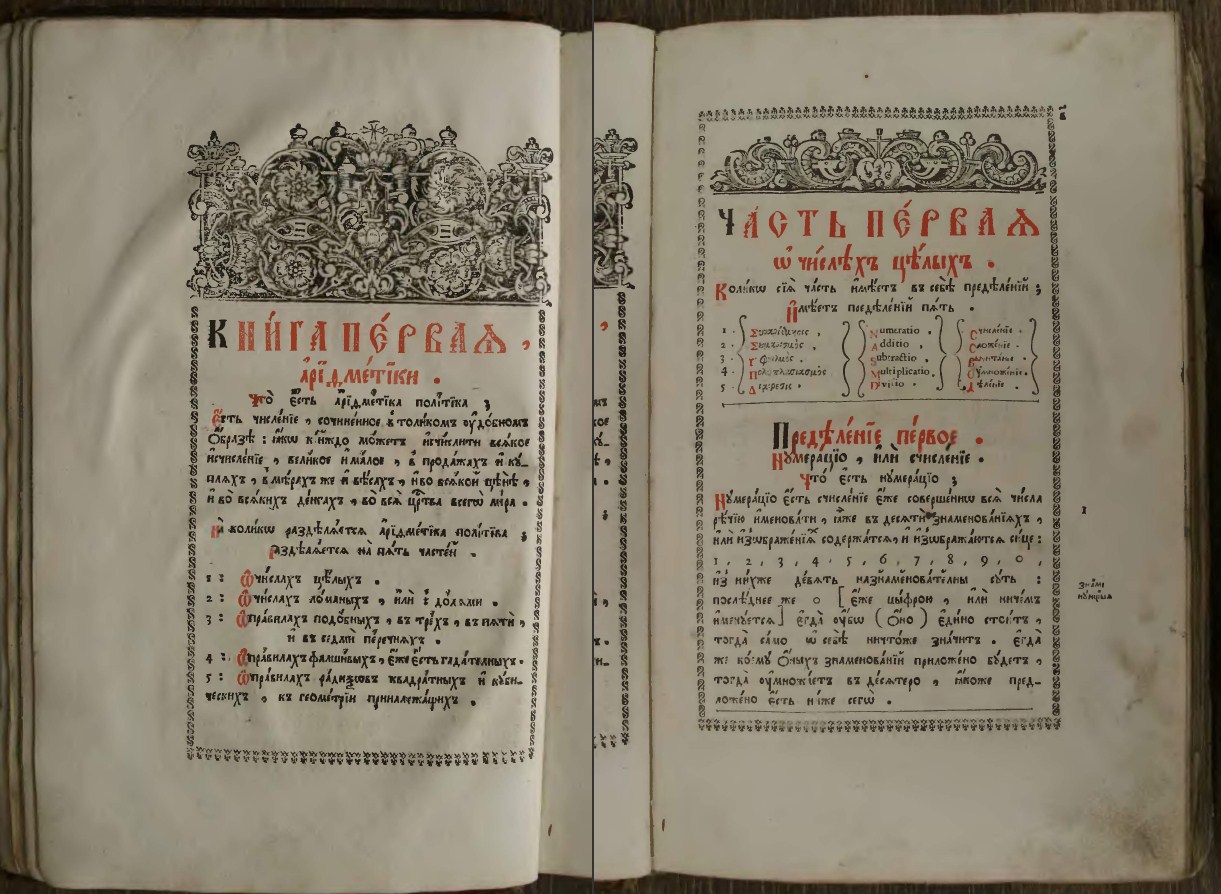 КНИ́ГА ПЕ́РВАѦ,
А҆РІѲМЕ́ТІКИ.
Что̀ є҆́сть а҆рїѳме́тїка полі́тїка;
Є҆́сть числе́нїе, сочине́нное в̾ толи́комъ ѹ҆до́бномъ
О҆́бразѣ: ꙗ҆́кѡ ки́йждо мо́жетъ и҆счи́слити всѧ́кое
и҆счисле́нїе, вели́кое и҆ ма́лое, в̾ прода́жахъ и҆ кѹ-
плѧ́хъ, в̾ мѣ́рахъ же и҆ вѣ́сахъ, и҆ во всѧ́кой цѣнѣ̀,
и҆ во̀ всѧ́кихъ де́нгахъ, во всѧ̀ ца҃рства всегѡ̀ мі́ра.
На̀ колі́кѡ раздѣлѧ́етсѧ а҆рїѳме́тїка полі́тїка;
Раздѣлѧ́етсѧ на̀ пѧ́ть часте́й.
1: Ѡ҆ чи́слахъ цѣ́лыхъ.
2: Ѡ҆ чи́слахъ ло́маныхъ, и҆лѝ с̾ до́лѧми.
3: Ѡ҆ пра́вилахъ подо́бныхъ, в̾ тре́хъ, в̾ пѧтѝ,
и҆ в̾ седмѝ пе́речнѧхъ.
4: Ѡ҆ пра́вилахъ фалши́выхъ, є҆́же є҆́сть гада́телныхъ.
5: Ѡ҆ пра́вилахъ ра́дїѯѡвъ квадра́тныхъ и҆ кѹби-
ческихъ, к̾ геоме́трїи приналежа́щихъ.
ЧА́СТЬ ПЕ́РВАѦ
ѡ҆ чи́слѣхъ цѣ́лыхъ.
Коли́кѡ сїѧ̀ ча́сть и҆мѣ́етъ в̾ себѣ̀ предѣле́нїй;
И҆мѣ́етъ предѣле́нїй пѧ́ть.
1. Numeratio. Счисле́нїе.
2. Additio. Сложе́нїе.
3. Subtractio. Вычита́нїе.
4. Multiplicatio. Ѹ҆множе́нїе.
5. Divisio. Дѣле́нїе.
Предѣле́нїе пе́рвое.
Нѹмера́цїо, и҆лѝ счисле́нїе.
Что̀ є҆́сть нѹмера́цїо;
Нѹмера́цїо є҆́сть счисле́нїе є҆́же соверше́ннѡ всѧ̀ числа
рѣ́чїю и҆менова́ти, ꙗ҆̀же в̾ десѧтѝ знаменова́нїѧхъ,
и҆лѝ и҆зѡбраже́нїѧ содержа́тсѧ, и҆ и҆зѡбража́ютсѧ си́це:
1, 2, 3, 4, 5, 6, 7, 8, 9, 0,
и҆з̾ ни́хже де́вѧть назнаменова́телны сѹ́ть:
послѣ́днее же 0 [є҆́же цы́фрою, и҆лѝ ничѣ́мъ
и҆менѹ́етсѧ] є҆гда̀ ѹ҆́бѡ (ѻ҆но̀) є҆ди́но стои́тъ,
тогда̀ само̀ ѡ҆ себѣ̀ ничто́же зна́читъ. Є҆гда̀
же коемѹ̀ ѻ҆́ныхъ знаменова́нїй приложе́но бѹ́детъ,
тогда̀ ѹ҆мно́жїетъ в̾ десѧ́теро, ꙗ҆́коже пред-
ложе́но є҆́сть ни́же сегѡ̀.